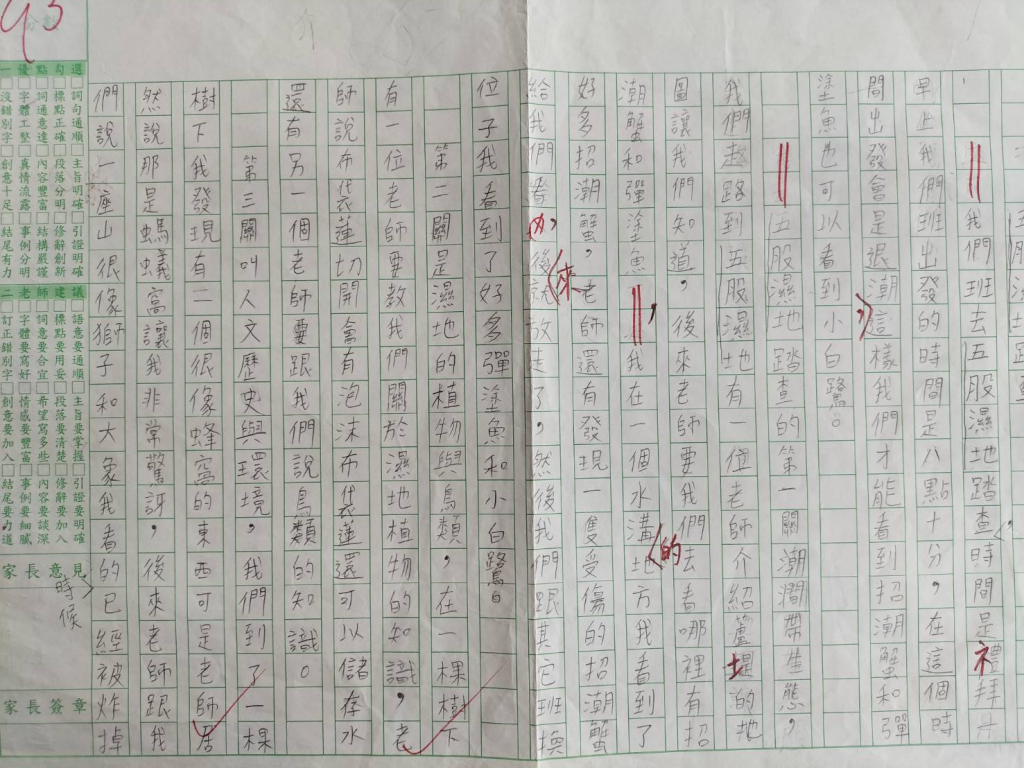 我們班去五股濕地踏查，時間是禮拜
早上我們班出發的時間是八點十分，在這個時
間出發會是退潮，這樣我們才能看到招潮蟹和彈
塗魚也可以看到小白鷺。
五股濕地踏查的第一關潮澗帶生態，
我們路到五股濕地有一位老師介紹蘆堤的地
圖讓我們知道，後來老師要我們去看哪裡有招
潮蟹和彈塗魚，我在一個水溝的地方我看到了
好多招潮蟹，老師還有發現一隻受傷的招潮蟹
給我們看後來就放走了，然後我們跟其它班換
位子我看到了好多彈塗魚和小白鷺。
第二關是濕地的植物與鳥類，在一棵樹下
有一位老師要教我們關於濕地植物的知識，老
師說布袋蓮切開會有泡沫布袋蓮還可以儲存水
還有另一個老師要跟我們說鳥類的知識。
第三關叫人文歷史與環境，我們到了一棵
樹下我發現有二個很像蜂窩的東西可是老師居
然說那是螞蟻窩讓我非常驚訝，後來老師跟我
們說一座山很像獅子和大象我看的時候已經被炸掉
95
一優點勾選
詞句通順 主旨明確 引證明確
標點正確 段落分明 修辭創新
詞通意達 內容豐富 結構嚴謹
字體工整 真情流露 事例分明
沒錯別字 創意十足 結尾有力
二老師建議
語意要通順 主旨要掌握 引證要明確
標點要用妥 段落要清楚 修辭要加入
詞意要合宜 希望寫多些 內容要談深
字體要寫好 情感要豐富 事例要細膩
訂正錯別字 創意要加入 結尾要力道
家長意見
家長簽章